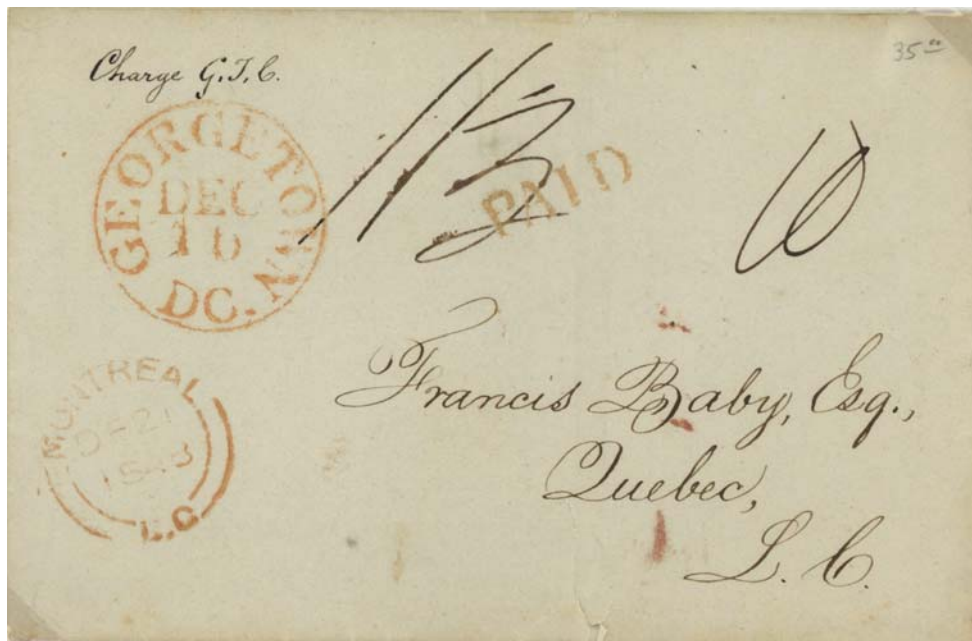 Charge G.T.C.
35 00
GEORGETOWN
DEC
16
DC.
1/13
PAID
10
MONTREAL
DE 21
1848
L.C
Francis Baby, Esq.,
Quebec,
L. C.